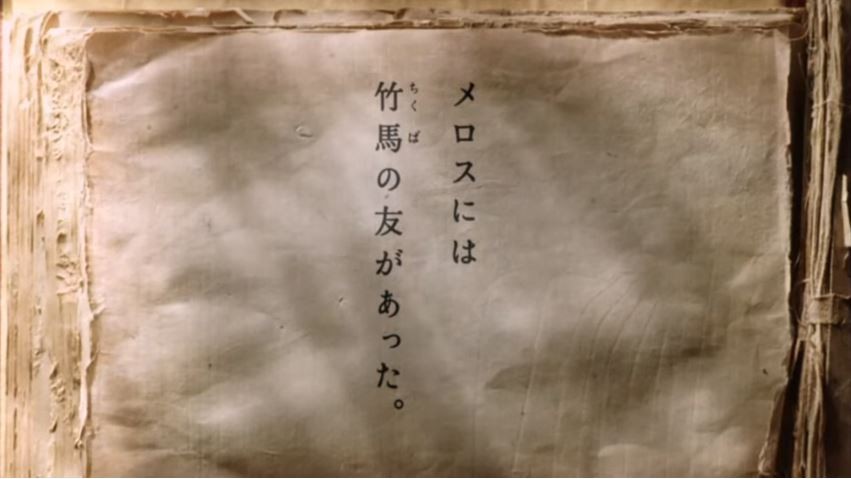 メロスには
竹馬の友があった。
ちくば